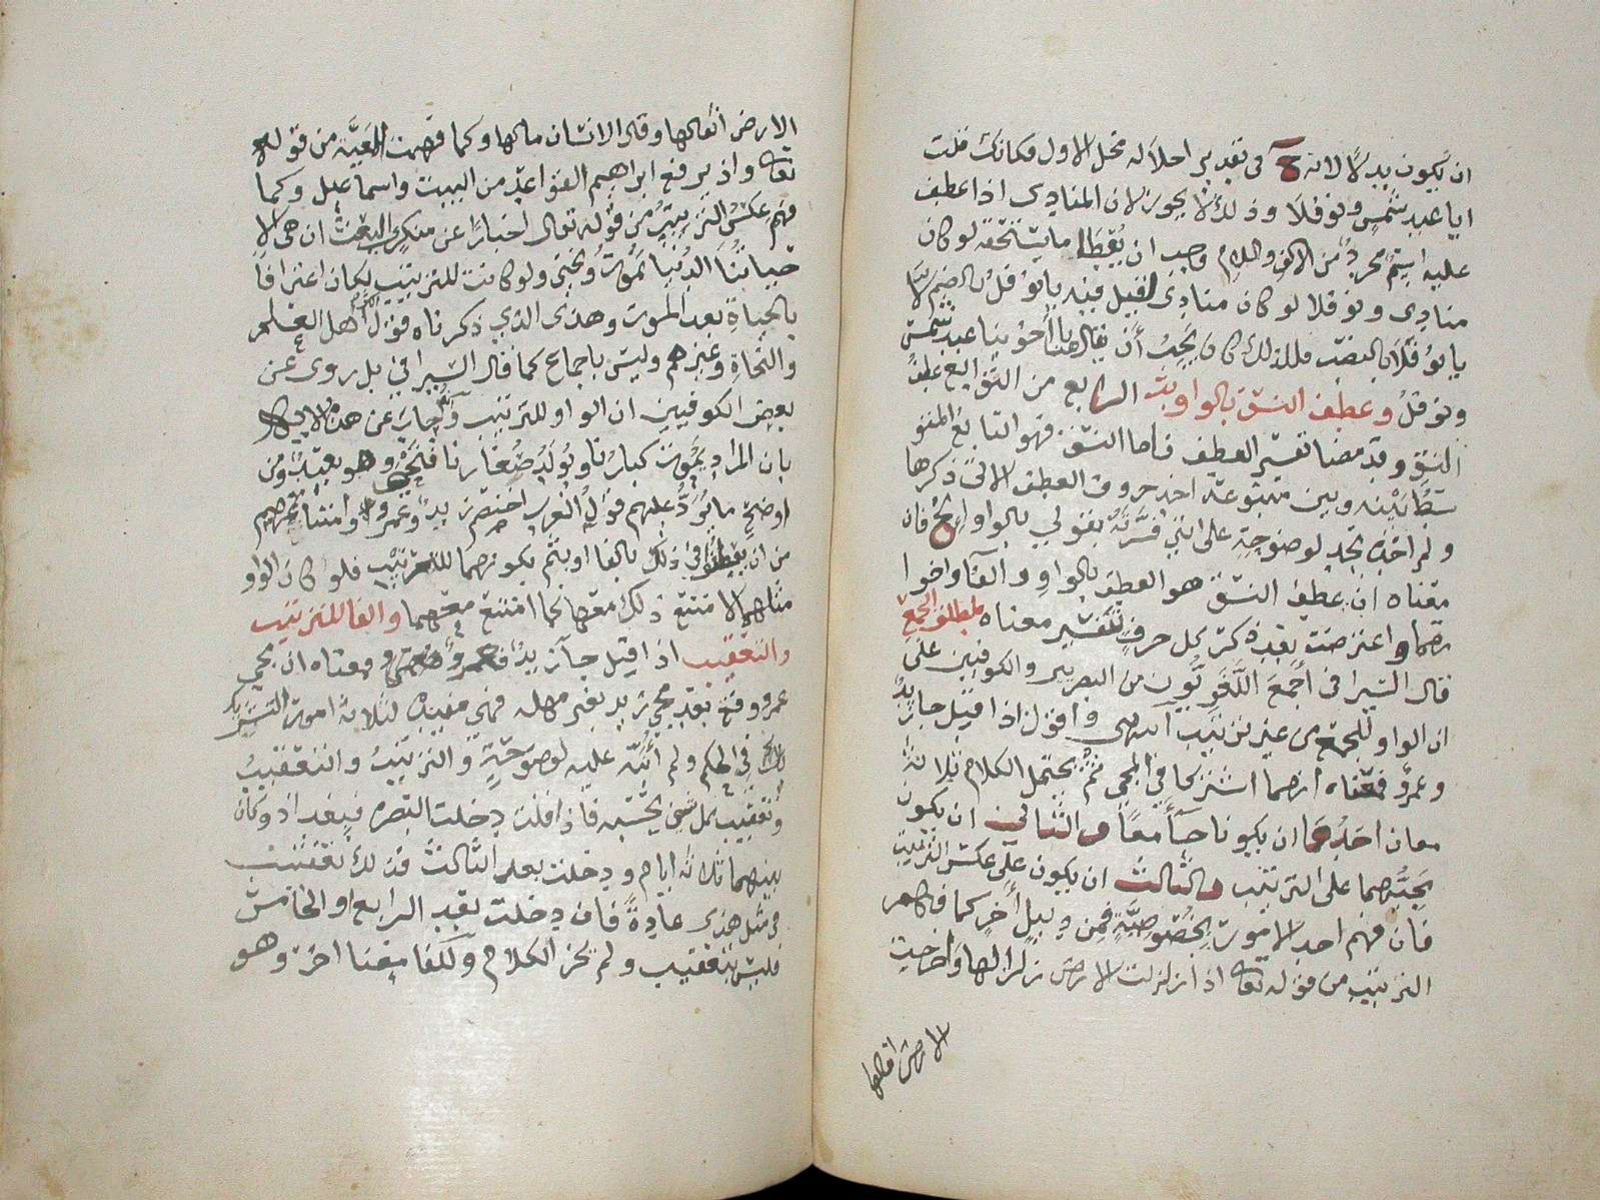 ان يكون بدلا لانه ح في تقدير احلاله محل الاول فكانك قلت
ايا عبد شمس ونوفلا وذلك لا يجوز لان المنادى اذا عطف
عليه اسم مجرد من الالف واللام وجب ان يعطا ما يستحقه لو كان
منادى ونوفلا لو كان منادى لقيل فيه يا نوفل بالضم لا
يا نوفلا بالنصب فلذلك كان يجب أن يقال هنا يا أخوينا عبد شمس
ونوفل وعطف النسق بالواو الرابع من التوابع عطف
النسق وقد مضا تفسير العطف فاما النسق فهو التابع المتو
سط بينه وبين متبوعه احد حروف العطف الاتى ذكرها
ولم احده بحد لوضوحه على انني فسرته بقولي بالواو الخ فان
معناه ان عطف النسق هو العطف بالواو والفا واخوا
تهما واعترضت بعد ذكر كل حرف بتفسير معناه لمطلق الجمع
قال السيرافي أجمع اللغويون من البصريين والكوفيين على
ان الواو للجمع من غير ترتيب انتهى واقول اذا قيل جا زيد
وعمرو فمعناه انهما اشتركا في المجي ثم يحتمل الكلام ثلاثة
معان احدها ان يكونا جاأ معا والثاني ان يكون
مجيئهما على الترتيب والثالث ان يكون على عكس الترتيب
فان فهم احد الامور بخصوصيته فمن دليل أخر كما فهم
الترتيب من قوله تعا اذا زلزلت الارض زلزالها واخرجت
الارض اثقالها
الارض أثقالها وقال الانسان مالها وكما فهمت المعية من قوله
تعا واذ يرفع ابراهيم القواعد من البيت واسماعيل وكما
فهم عكس الترتيب من قوله تعالى اخبارا عن منكري البعث ان هى الا
حياتنا الدنيا نموت ونحيى ولو كانت للترتيب لكان اعترافا
بالحياة بعد الموت وهذى الذي ذكرناه قول اكثر اهل العلم
والنحاة وغيرهم وليس باجماع كما قال السيرافي بل روى عن
بعض الكوفيين ان الواو للترتيب وانه اجاب عن هذه الاية
بان المراد يموت كبارنا ويولد صغارنا فنحيى وهو بعيد ومن
اوضح ما يرد عليهم قول العرب اختصم زيد وعمرو وامتناعهم
من ان يعطفوا في ذلك بالفا او بثم بكونهما للترتيب فلو كان الواو
مثلهما لامتنع ذلك معها كما امتنع معهما والفا للترتيب
والتعقيب اذا قيل جآ زيد فعمرو فمعناه ان مجي
عمرو وقع بعد مجي زيد بغير مهله فهي مفيده لثلاثة امور التشريك
في الحكم ولم أنبه عليه لوضوحه والترتيب والتعقيب
وتعقيب كل شي بحسبه فاذا قلت دخلت البصره فبغداد وكان
بينهما ثلاثه ايام ودخلت بعد الثالث فذلك تعقيب
في مثل هذى عادة فان دخلت بعد الرابع او الخامس
فليس بتعقيب ولم يجز الكلام وللفا معنا اخر وهو